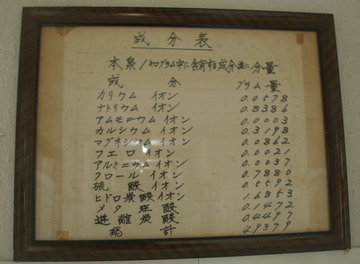 成分表
本泉1キログラム中ニ含有スル成分並ニ分量
成分 グラム量
カリウム イオン 0.0578
ナトリウム イオン 0.8386
アムモニウム イオン 0.0003
カルシウム イオン 0.3198
マグネシウム イオン 0.0862
フエロ イオン 0.0021
アルミニウム イオン 0.0037
クロール イオン 0.7380
硫酸 イオン 0.5592
ヒドロ炭酸 イオン 1.6853
メタ珪酸 0.1472
遊離炭酸 0.4497
総計 4.9379